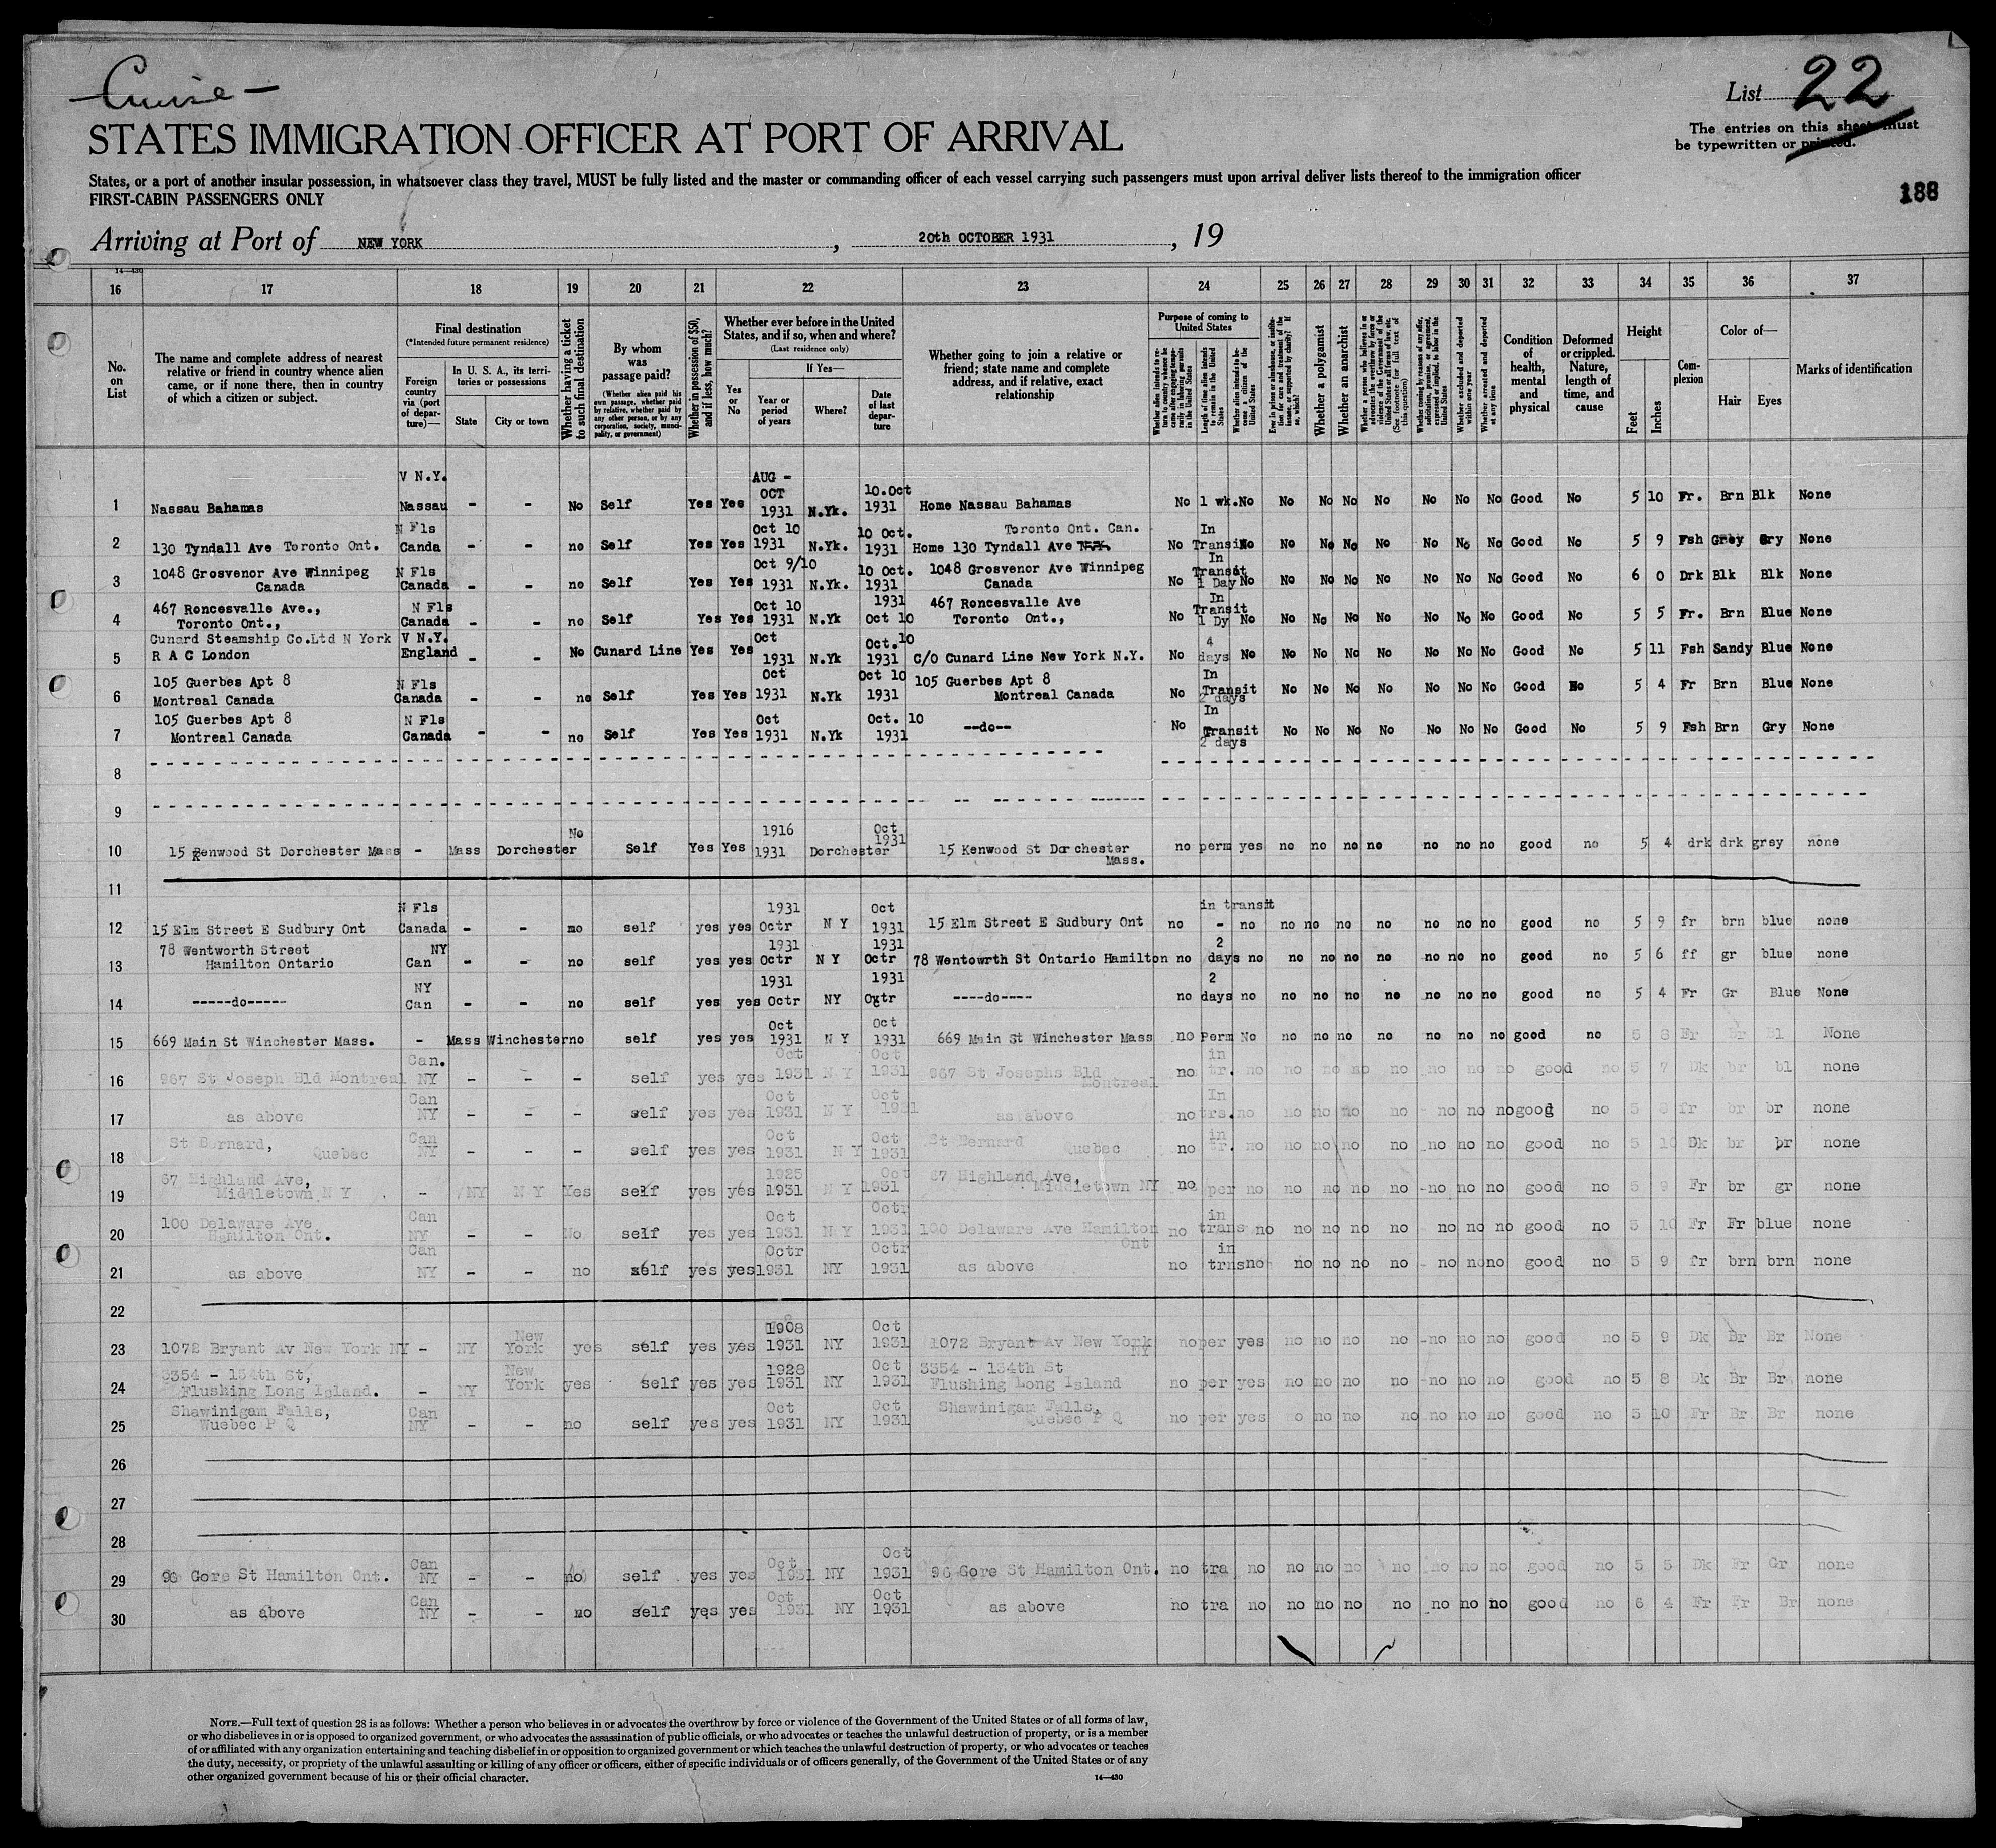 Cruise
List 22
STATES IMMIGRATION OFFICER AT PORT OF ARRIVAL
The entries on this sheet must
be typewritten or printed.
States, or a port of another insular possession, in whatsoever class they travel, MUST be fully listed and the master or commanding officer of each vessel carrying such passengers must upon arrival deliver lists thereof to the immigration officer
FIRST-CABIN PASSENGERS ONLY
188
Arriving at Port of NEW YORK, 20th OCTOBER 1931, 19
14—430
16 17 18 19 20 21 22 23 24 25 26 27 28 29 30 31 32 33 34 35 36 37
No. on List
The name and complete address of nearest relative or friend in country whence alien came, or if none there, then in country of which a citizen or subject.
Final destination
(*Intended future permanent residence)
Foreign country via (port of departure)—
In U. S. A., its territories or possessions
State
City or town
Whether having a ticket to such final destination
By whom was passage paid?
(Whether alien paid his own passage, whether paid by relative, whether paid by any other person, or by any corporation, society, municipality, or government)
Whether in possession of $50, and if less, how much?
Whether ever before in the United States, and if so, when and where?
(Last residence only)
Yes or No
If Yes—
Year or period of years
Where?
Date of last departure
Whether going to join a relative or friend; state name and complete address, and if relative, exact relationship
Purpose of coming to United States
Whether alien intends to return to country whence he came after engaging temporarily in laboring pursuits in the United States
Length of time alien intends to remain in the United States
Whether alien intends to become a citizen of the United States
Ever in prison or almshouse, or institution for care and treatment of the insane, or supported by charity? If so, which?
Whether a polygamist
Whether an anarchist
Whether a person who believes in or advocates the overthrow by force or violence of the Government of the United States or all forms of law, etc. (See footnote for full text of this question)
Whether coming by reason of any offer, solicitation, promise, or agreement, expressed or implied, to labor in the United States
Whether excluded and deported within one year
Whether arrested and deported at any time
Condition of health, mental and physical
Deformed or crippled. Nature, length of time, and cause
Height
Feet
Inches
Complexion
Color of—
Hair
Eyes
Marks of identification
1 Nassau Bahamas V N.Y. Nassau - - No Self Yes Yes AUG - OCT 1931 N.Yk. 10.Oct 1931 Home Nassau Bahamas No 1 wk. No No No No No No No No Good No 5 10 Fr. Brn Blk None
2 130 Tyndall Ave Toronto Ont. N Fls Canda - - no Self Yes Yes Oct 10 1931 N.Yk. 10 Oct. 1931 Home 130 Tyndall Ave Toronto Ont. Can. No In Transit No No No No No No No No Good No 5 9 Fsh Grey Gry None
3 1048 Grosvenor Ave Winnipeg Canada N Fls Canada - - no Self Yes Yes Oct 9/10 1931 N.Yk. 10 Oct. 1931 1048 Grosvenor Ave Winnipeg Canada No In Transit 1 Day No No No No No No No No Good No 6 0 Drk Blk Blk None
4 467 Roncesvalle Ave., Toronto Ont., N Fls Canada - - no Self Yes Yes Oct 10 1931 N.Yk 1931 Oct 10 467 Roncesvalle Ave Toronto Ont., No In Transit 1 Dy No No No No No No No No Good No 5 5 Fr. Brn Blue None
5 Cunard Steamship Co.Ltd N York R A C London V N.Y. England - - No Cunard Line Yes Yes Oct 1931 N.Yk Oct.10 1931 C/O Cunard Line New York N.Y. No 4 days No No No No No No No No Good No 5 11 Fsh Sandy Blue None
6 105 Guerbes Apt 8 Montreal Canada N Fls Canada - - no Self Yes Yes Oct 1931 N.Yk Oct 10 1931 105 Guerbes Apt 8 Montreal Canada No In Transit 2 days No No No No No No No Good No 5 4 Fr Brn Blue None
7 105 Guerbes Apt 8 Montreal Canada N Fls Canada - - no Self Yes Yes Oct 1931 N.Yk Oct. 10 1931 --do-- No In Transit 2 days No No No No No No No Good No 5 9 Fsh Brn Gry None
8
9
10 15 Kenwood St Dorchester Mass - Mass Dorchester No Self Yes Yes 1916 1931 Dorchester Oct 1931 15 Kenwood St Dorchester Mass. no perm yes no no no no no no no good no 5 4 drk drk grey none
11
12 15 Elm Street E Sudbury Ont N Fls Canada - - no self yes yes 1931 Octr N Y Oct 1931 15 Elm Street E Sudbury Ont no in transit - no no no no no no no no good no 5 9 fr brn blue none
13 78 Wentworth Street Hamilton Ontario NY Can - - no self yes yes 1931 Octr N Y 1931 Octr 78 Wentowrth St Ontario Hamilton no 2 days no no no no no no no no good no 5 6 ff gr blue none
14 -----do----- NY Can - - no self yes yes 1931 Octr NY 1931 Octr ----do---- no 2 days no no no no no no no no good no 5 4 Fr Gr Blue None
15 669 Main St Winchester Mass. - Mass Winchester no self yes yes Oct 1931 N Y Oct 1931 669 Main St Winchester Mass no Perm No no no no no no no no good no 5 8 Fr Br Bl None
16 967 St Joseph Bld Montreal Can. NY - - - self yes yes Oct 1931 N Y Oct 1931 967 St Josephs Bld Montreal no in tr. no no no no no no no no good no 5 7 Dk br bl none
17 as above Can NY - - - self yes yes Oct 1931 N Y Oct 1931 as above no In trs. no no no no no no no no good no 5 8 fr br br none
18 St Bernard, Quebec Can NY - - - self yes yes Oct 1931 N Y Oct 1931 St Bernard Quebec no in tr. no no no no no no no no good no 5 10 Dk br br none
19 67 Highland Ave, Middletown N Y - NY N Y Yes self yes yes 1925 1931 N Y Oct 1931 67 Highland Ave, Middletown NY no per no no no no no no no no good no 5 9 Fr br gr none
20 100 Delaware Ave Hamilton Ont. Can NY - - No self yes yes Oct 1931 N Y Octr 1931 100 Delaware Ave Hamilton Ont no in trans no no no no no no no no good no 5 10 Fr Fr blue none
21 as above Can NY - - no self yes yes Octr 1931 NY Octr 1931 as above no in trns no no no no no no no no good no 5 9 fr brn brn none
22
23 1072 Bryant Av New York NY - NY New York yes self yes yes 1908 1931 NY Oct 1931 1072 Bryant Av New York NY no per yes no no no no no no no good no 5 9 Dk Br Br None
24 3354 - 134th St, Flushing Long Island. - NY New York yes self yes yes 1928 1931 NY Oct 1931 3354 - 134th St Flushing Long Island no per yes no no no no no no no good no 5 8 Dk Br Br none
25 Shawinigam Falls, Wuebec P Q Can NY - - no self yes yes Oct 1931 NY Oct 1931 Shawinigam Falls, Quebec P Q no per yes no no no no no no no good no 5 10 Fr Br Br none
26
27
28
29 96 Gore St Hamilton Ont. Can NY - - no self yes yes Oct 1931 NY Oct 1931 96 Gore St Hamilton Ont. no tra no no no no no no no no good no 5 5 Dk Fr Gr none
30 as above Can NY - - no self yes yes Oct 1931 NY Oct 1931 as above no tra no no no no no no no no good no 6 4 Fr Fr Br none
NOTE.—Full text of question 28 is as follows: Whether a person who believes in or advocates the overthrow by force or violence of the Government of the United States or of all forms of law,
or who disbelieves in or is opposed to organized government, or who advocates the assassination of public officials, or who advocates or teaches the unlawful destruction of property, or is a member
of or affiliated with any organization entertaining and teaching disbelief in or opposition to organized government or which teaches the unlawful destruction of property, or who advocates or teaches
the duty, necessity, or propriety of the unlawful assaulting or killing of any officer or officers, either of specific individuals or of officers generally, of the Government of the United States or of any
other organized government because of his or their official character.
14—430